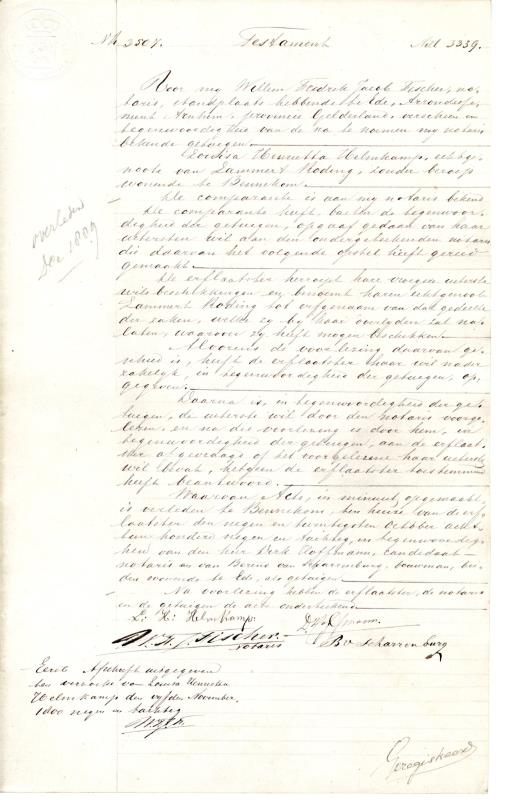 No 3507. Testament No 3339.
Voor my Willem Fredrik Jacob Fischer, no-
taris, standplaats hebbende te Ede, Arrondisse-
ment Arnhem, provincie Gelderland, verscheen in
tegenwoordigheid van de na te noemen my notaris
bekende getuigen:
Louisa Henrietta Helmkamp, echtge-
noote van Lammert Roding, zonder beroep
wonende te Bennekom.
De comparante is aan my notaris bekend
De comparante heeft, buiten de tegenwoor-
digheid der getuigen, opgaaf gedaan van haar
uitersten wil aan den ondergeteekenden notaris
die daarvan het volgende opstel heeft gereed
gemaakt.
De erflaatster herroept hare vroegere uiterste
wilsbeschikkingen en benoemt haren echtgenoot
Lammert Roding tot erfgenaam van dat gedeelte
der zaken, welke zy by haar overlyden zal na-
laten, waarover zy heeft mogen beschikken.
Alvorens de voorlezing daarvan ge-
schied is, heeft de erflaatster haar wil nader
zakelyk, in tegenwoordigheid der getuigen, op-
gegeven.
Daarna is, in tegenwoordigheid der ge-
tuigen, de uiterste wil door den notaris voorge-
lezen, en na die voorlezing is door hem, in
tegenwoordigheid der getuigen, aan de erflaat-
ster afgevraagd of het voorgelezene haar uitersten
wil bevat, hetgeen de erflaatster toestemmend
heeft beantwoord.
Waarvan Acte, in minuut opgemaakt,
is verleden te Bennekom, ten huize van de erf-
laatster den negen en twintigsten October acht-
tien honderd negen en tachtig, in tegenwoordig-
heid van den heer Derk Hoffmann, candidaat-
notaris en van Berend van Scharrenburg, bouwman, bei-
den wonende te Ede, als getuigen.
Na voorlezing hebben de erflaatster, de notaris
en de getuigen de acte onderteekend.
L: H: Helmkamp. D. Hoffmann.
W. F. J. Fischer B v Scharrenburg
notaris
Eerste Afschrift uitgegeven
ten verzoeke van Louisa Henrietta
Helmkamp den vyfden November
1800 negen en tachtig
overleden
Dec 1889
Geregistreerd